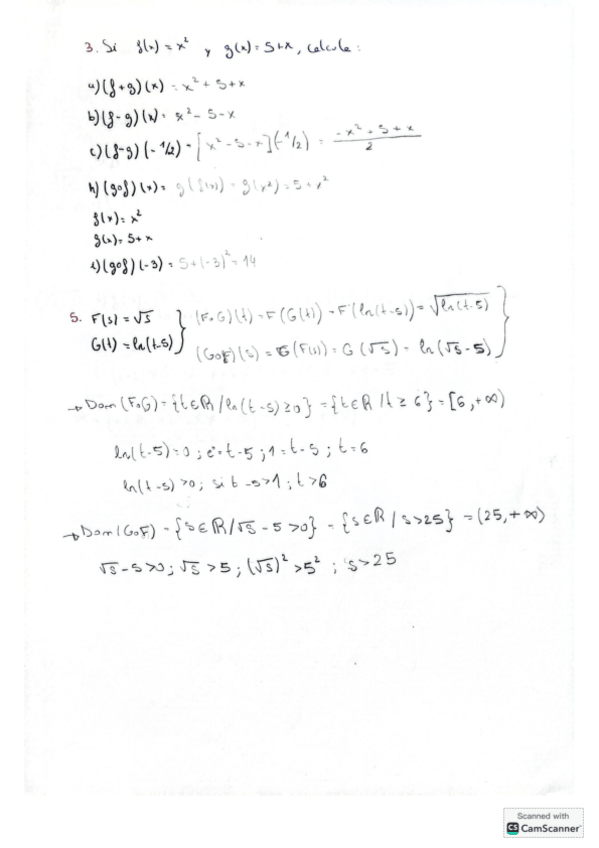 3. Si f(x) = x² y g(x) = 5+x, calcule:
a) (f+g)(x) = x² + 5+x
b) (f-g)(x) = x² - 5 - x
c) (f-g)(-1/2) = [x² - 5 - x](-1/2) = (-x² + 5 + x)/2
h) (g∘f)(x) = g(f(x)) = g(x²) = 5+x²
f(x) = x²
g(x) = 5+x
i) (g∘f)(-3) = 5+(-3)² = 14
5. F(s) = √s } (F∘G)(t) = F(G(t)) = F(ln(t-5)) = √ln(t-5) }
G(t) = ln(t-5) } (G∘F)(s) = G(F(s)) = G(√s) = ln(√s - 5) }
→ Dom(F∘G) = {t∈ℝ / ln(t-5) ≥ 0} = {t∈ℝ / t ≥ 6} = [6, +∞)
ln(t-5) = 0 ; e⁰ = t-5 ; 1 = t-5 ; t=6
ln(t-5) > 0 ; si t-5 > 1 ; t > 6
→ Dom(G∘F) = {s∈ℝ / √s - 5 > 0} = {s∈ℝ / s > 25} = (25, +∞)
√s - 5 > 0 ; √s > 5 ; (√s)² > 5² ; s > 25
Scanned with
CS CamScanner